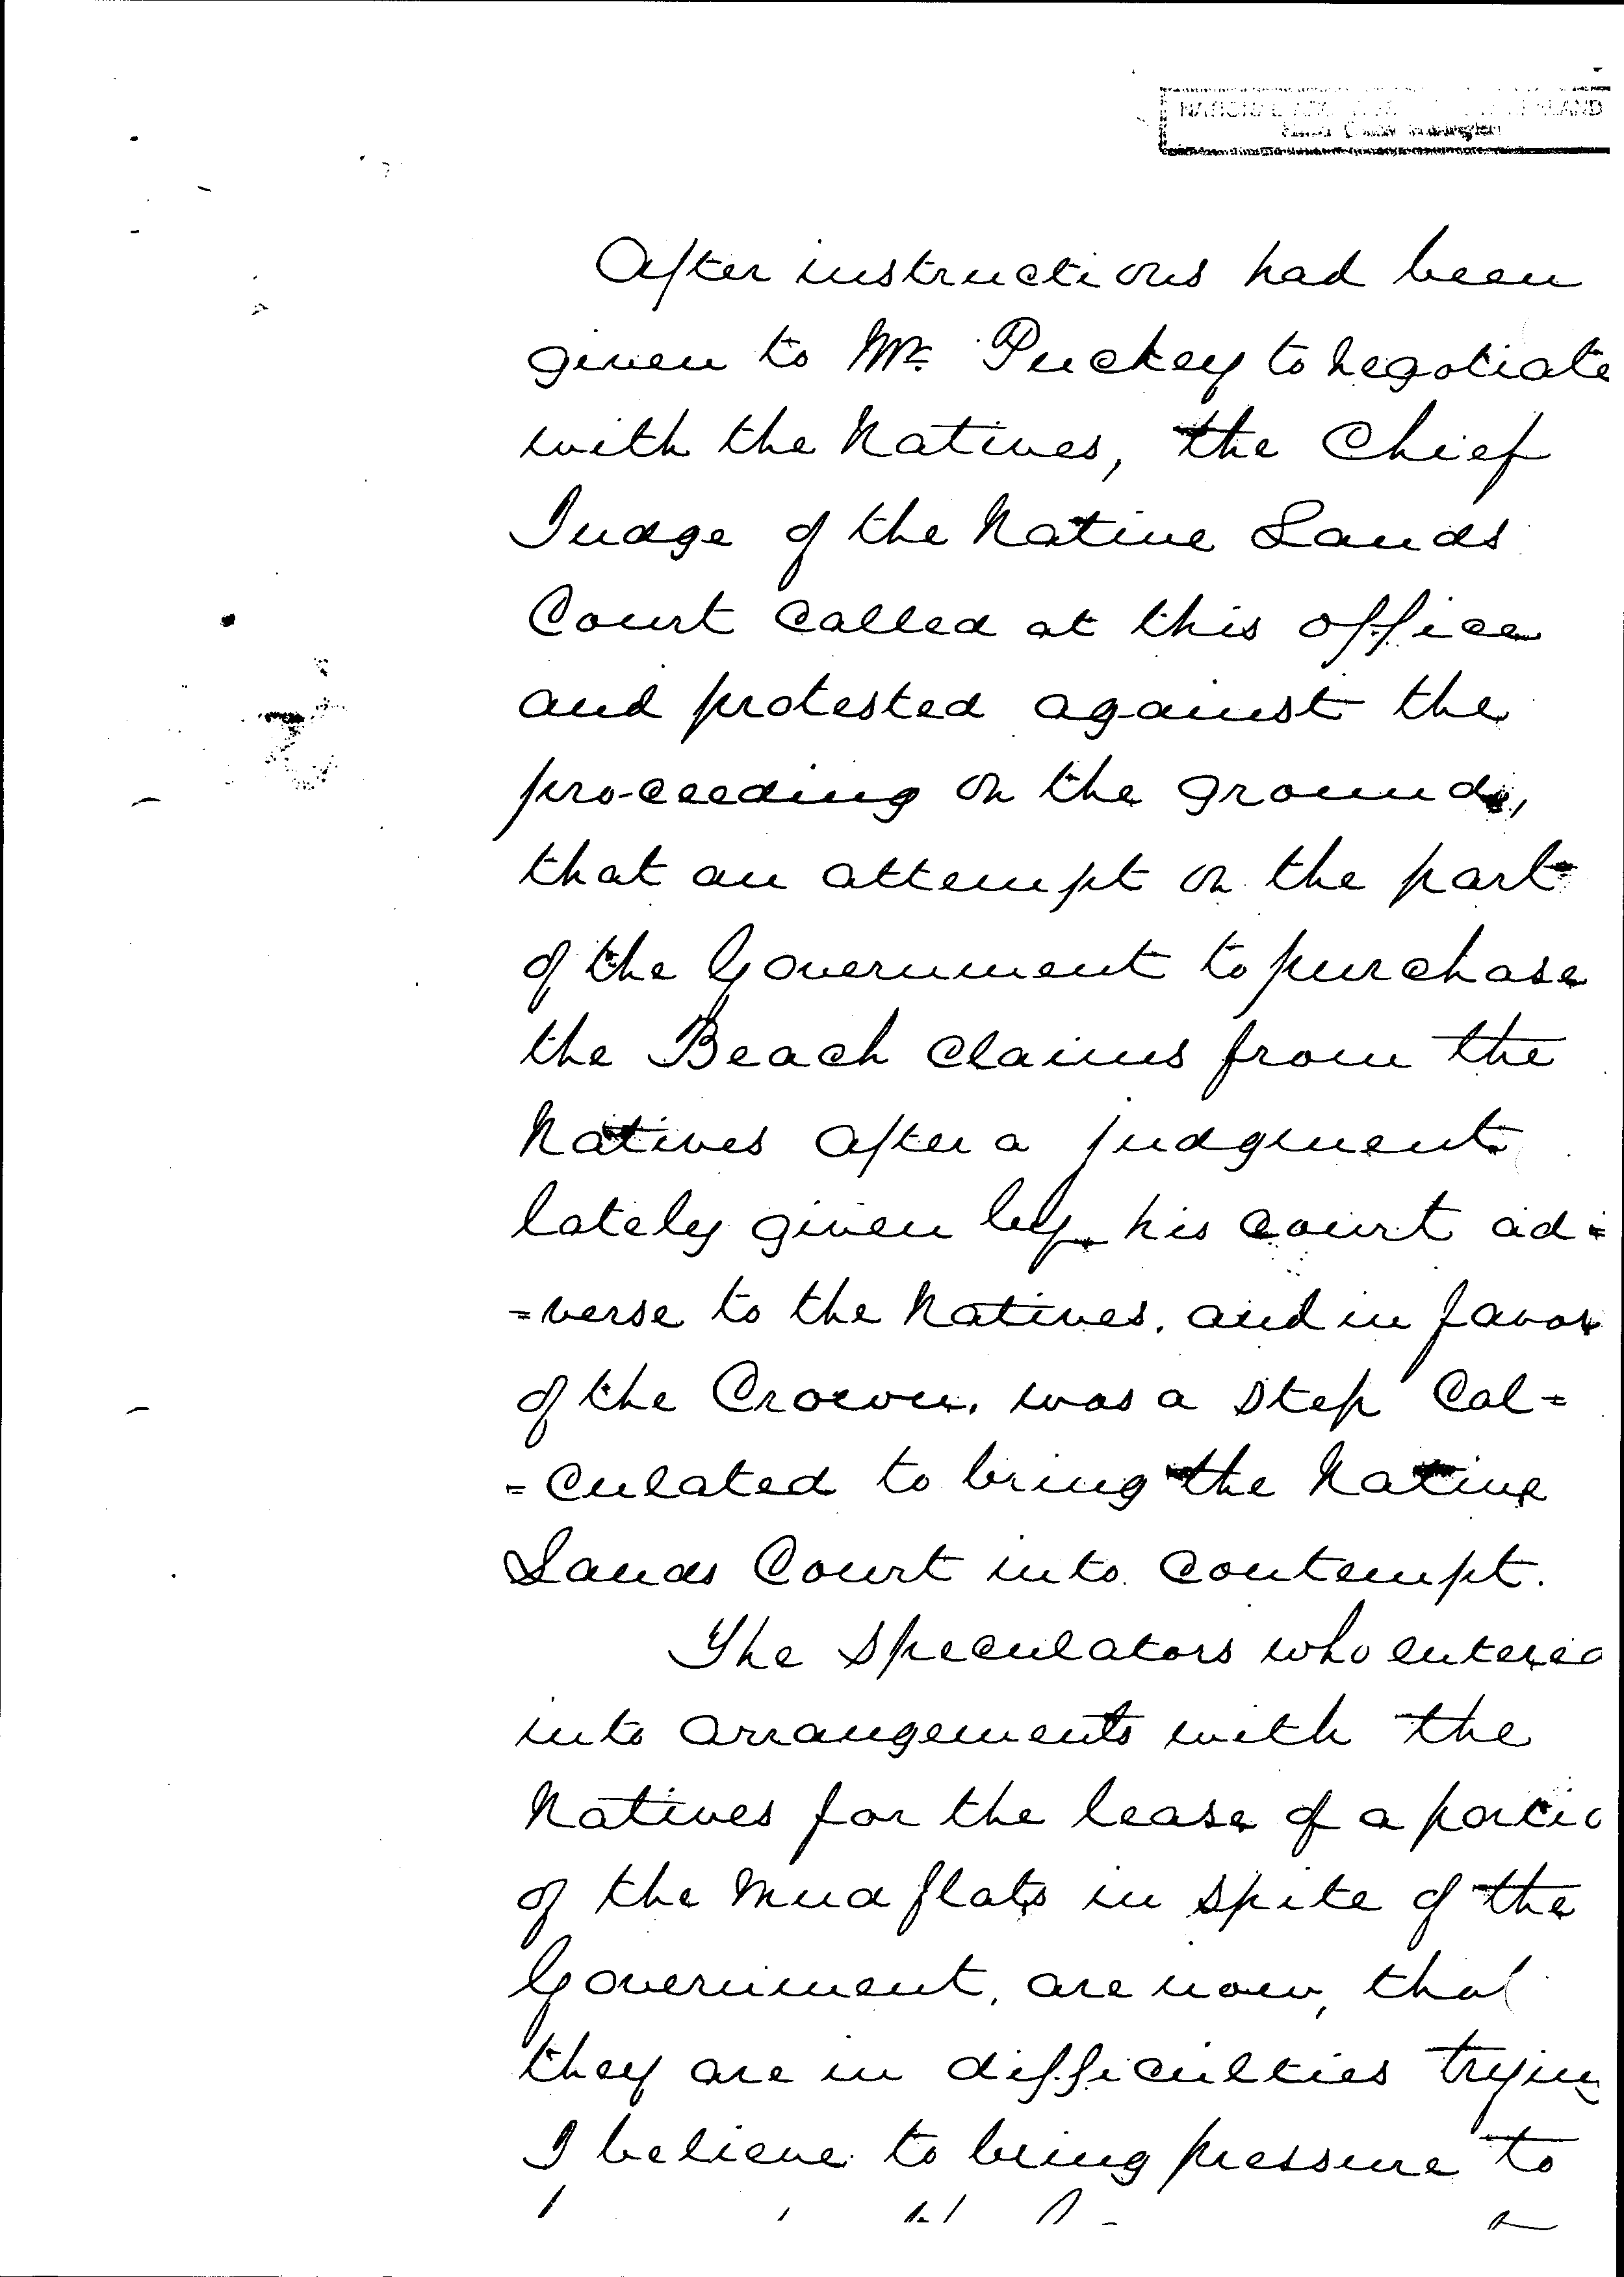 After instructions had been
given to Mr. Puckey to negotiate
with the Natives, the Chief
Judge of the Native Lands
Court called at this office
and protested against the
proceeding on the ground,
that an attempt on the part
of the Government to purchase
the Beach claims from the
Natives after a judgment
lately given by his court ad=
=verse to the Natives. and in favor
of the Crown, was a step Cal=
=culated to bring the Native
Lands Court into contempt.
The Speculators who entered
into arrangements with the
Natives for the lease of a portio
of the Mud flats in spite of the
Government, are now, that
they are in difficulties trying
I believe to bring pressure to